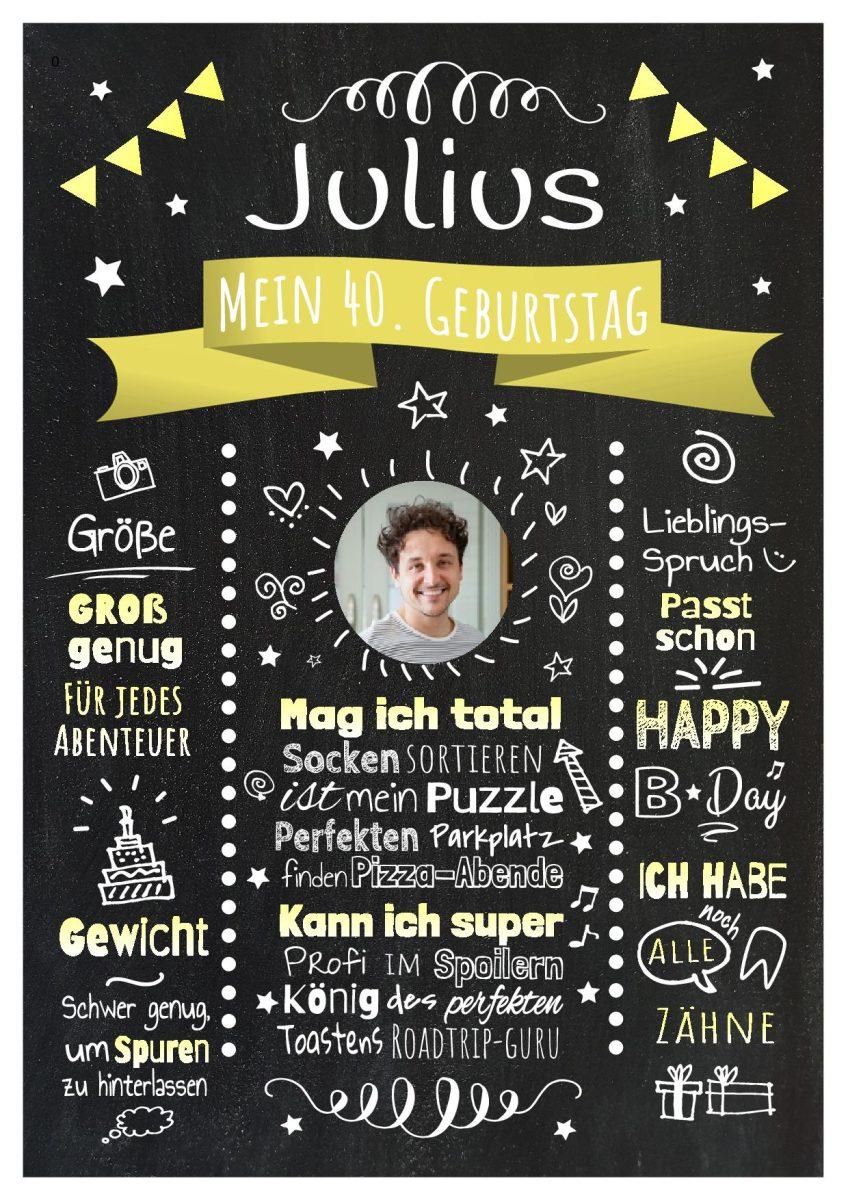 0
Julius
Mein 40. Geburtstag
Größe
GROß
genug
FÜR JEDES
ABENTEUER
Gewicht
Schwer genug,
um Spuren
zu hinterlassen
Mag ich total
Socken SORTIEREN
ist mein Puzzle
Perfekten Parkplatz
finden Pizza-Abende
Kann ich super
Profi im Spoilern
König des perfekten
Toastens ROADTRIP-GURU
Lieblings-
Spruch
Passt
schon
HAPPY
B Day
ICH HABE
noch
ALLE
ZÄHNE